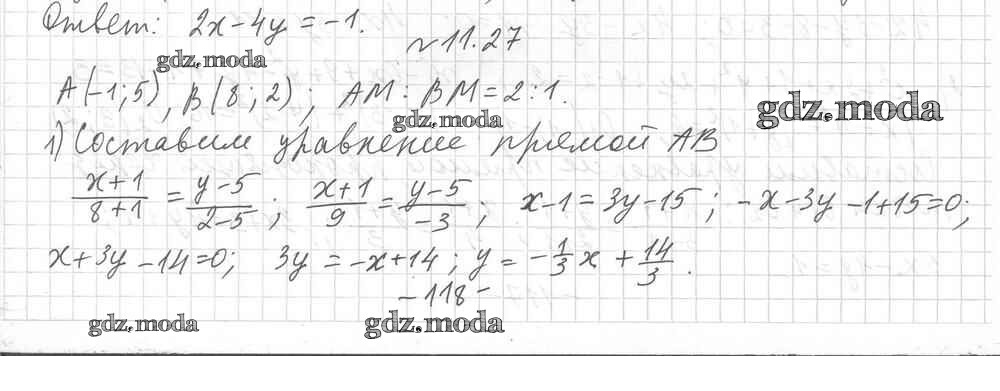 Ответ: 2x-4y=-1.
~11.27
gdz.moda
A(-1;5), B(8;2); AM:BM=2:1.
gdz.moda
gdz.moda
1) Составим уравнение прямой AB
(x+1)/(8+1)=(y-5)/(2-5); (x+1)/9=(y-5)/(-3); x-1=3y-15; -x-3y-1+15=0;
x+3y-14=0; 3y=-x+14; y=-1/3x+14/3.
-118-
gdz.moda
gdz.moda